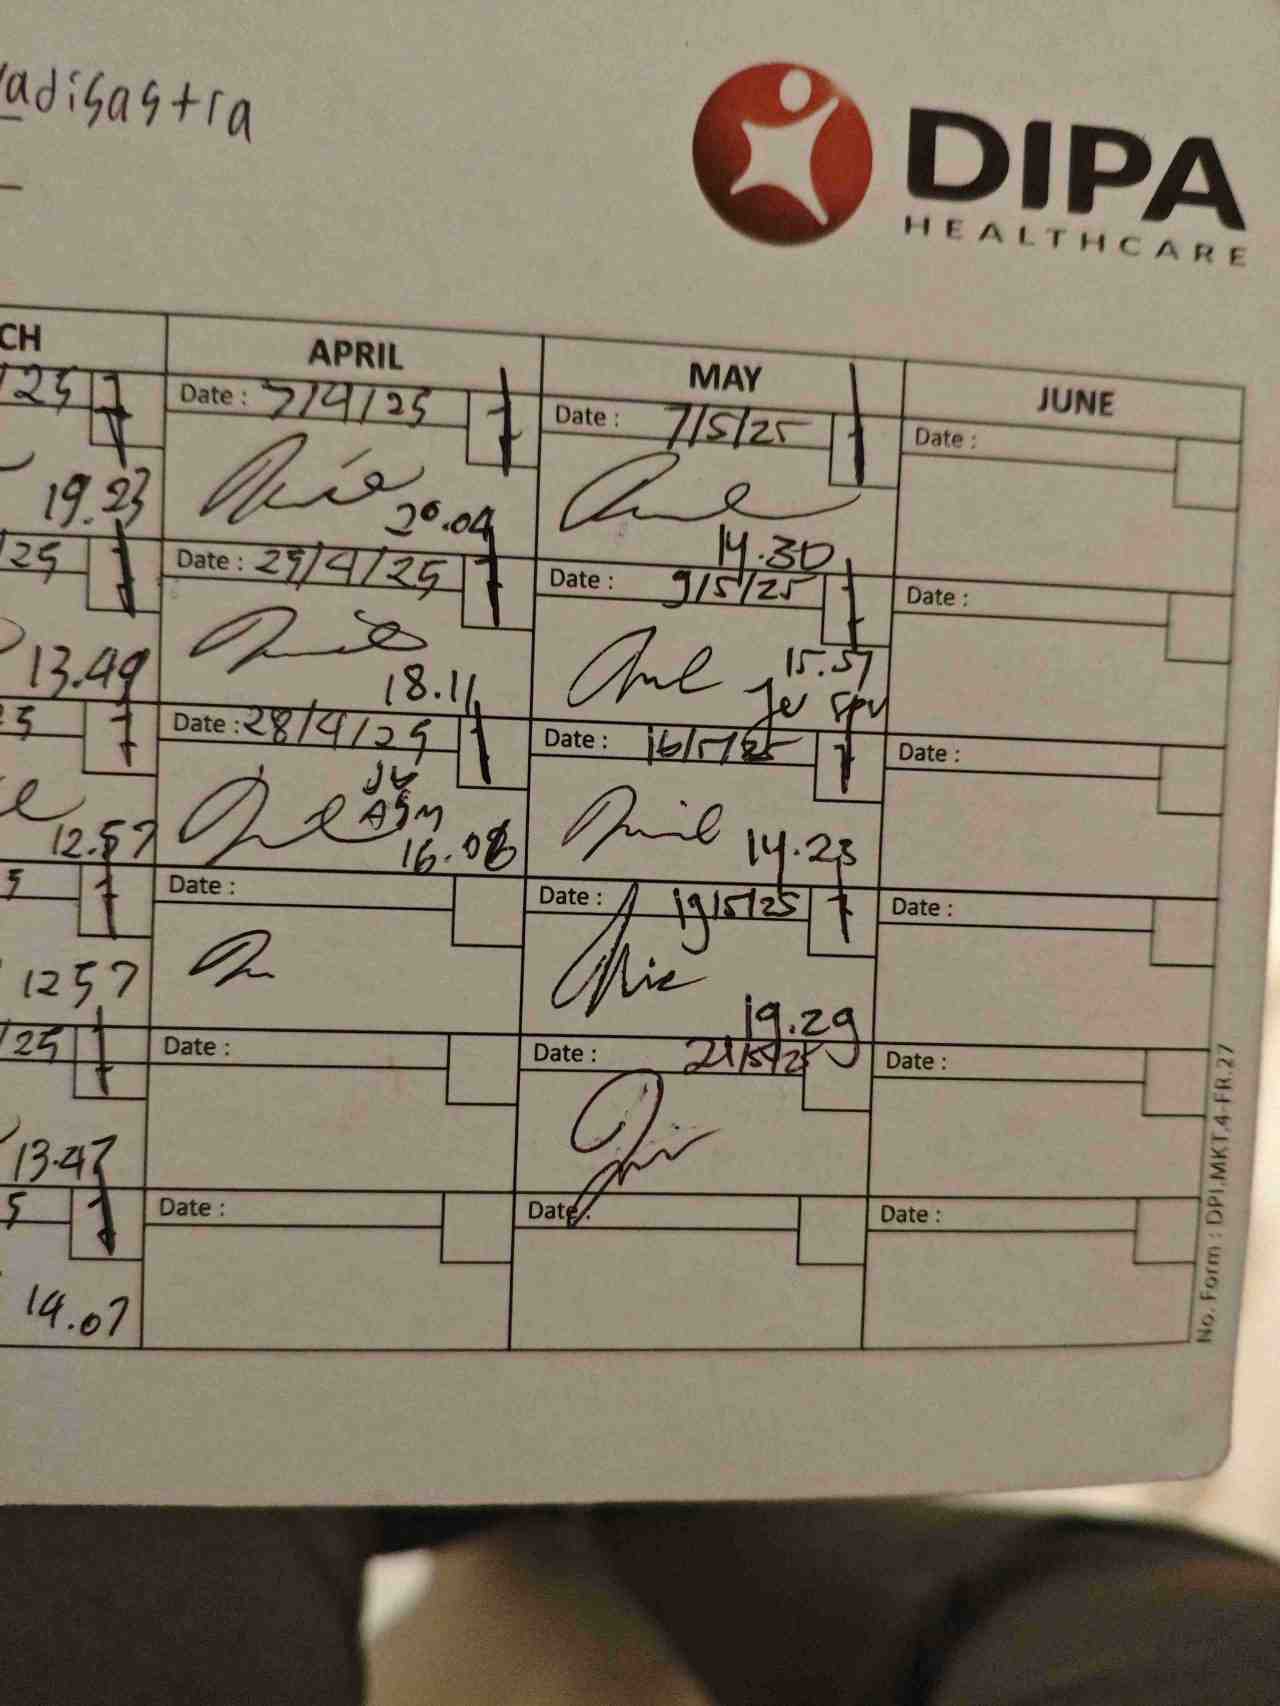 adisastra
DIPA
HEALTHCARE
CH APRIL MAY JUNE
/25 Date : 7/4/25 Date : 7/5/25 Date :
19.23 20.04 14.30
/25 Date : 25/4/25 Date : 9/5/25 Date :
13.49 18.11 15.57
5 Date : 28/4/25 Date : 16/5/25 Date :
ASM
12.57 16.08 14.23
5 Date : Date : 19/5/25 Date :
1257 19.29
/25 Date : Date : 21/5/25 Date :
13.47
5 Date : Date : Date :
14.07
No. Form : DPI.MKT.4-FR.27